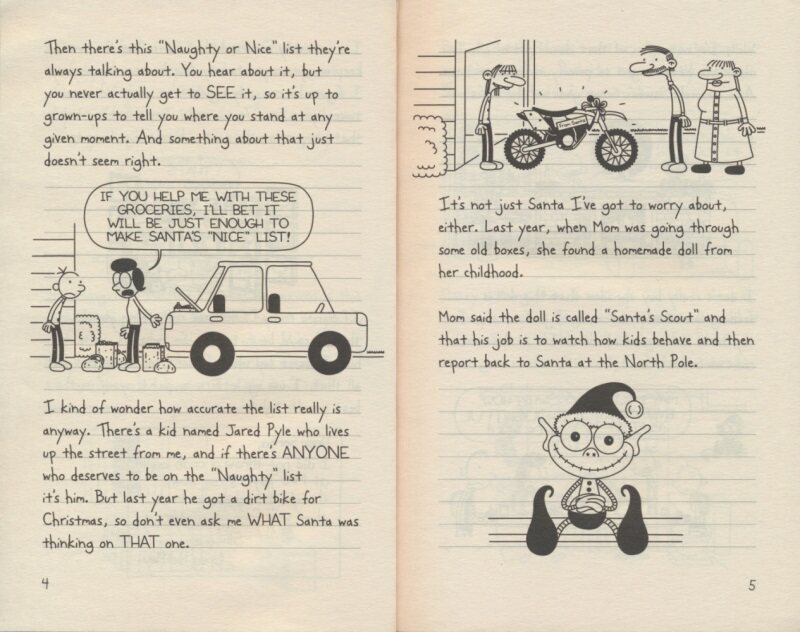 Then there's this "Naughty or Nice" list they're
always talking about. You hear about it, but
you never actually get to SEE it, so it's up to
grown-ups to tell you where you stand at any
given moment. And something about that just
doesn't seem right.
IF YOU HELP ME WITH THESE
GROCERIES, I'LL BET IT
WILL BE JUST ENOUGH TO
MAKE SANTA'S "NICE" LIST!
I kind of wonder how accurate the list really is
anyway. There's a kid named Jared Pyle who lives
up the street from me, and if there's ANYONE
who deserves to be on the "Naughty" list
it's him. But last year he got a dirt bike for
Christmas, so don't even ask me WHAT Santa was
thinking on THAT one.
4
From Santa
It's not just Santa I've got to worry about,
either. Last year, when Mom was going through
some old boxes, she found a homemade doll from
her childhood.
Mom said the doll is called "Santa's Scout" and
that his job is to watch how kids behave and then
report back to Santa at the North Pole.
5